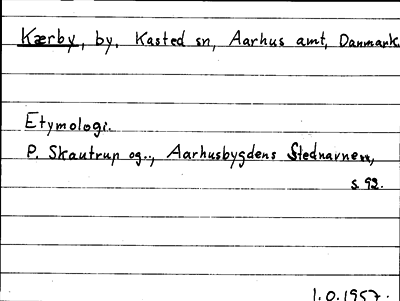 Kærby, by, Kasted sn, Aarhus amt, Danmark.
Etymologi.
P. Skautrup og.., Aarhusbygdens Stednavne,
s. 92.
1.0.1957.